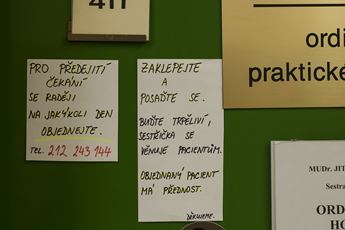 411
PRO PŘEDEJITÍ
ČEKÁNÍ
SE RADĚJI
NA JAKÝKOLI DEN
OBJEDNEJTE.
TEL. 212 243 144
ZAKLEPEJTE
A
POSAĎTE SE.
BUĎTE TRPĚLIVÍ,
SESTŘIČKA SE
VĚNUJE PACIENTŮM.
OBJEDNANÝ PACIENT
MÁ PŘEDNOST.
DĚKUJEME.
ordi
praktické
MUDr. JIT
Sestra
ORD
HO